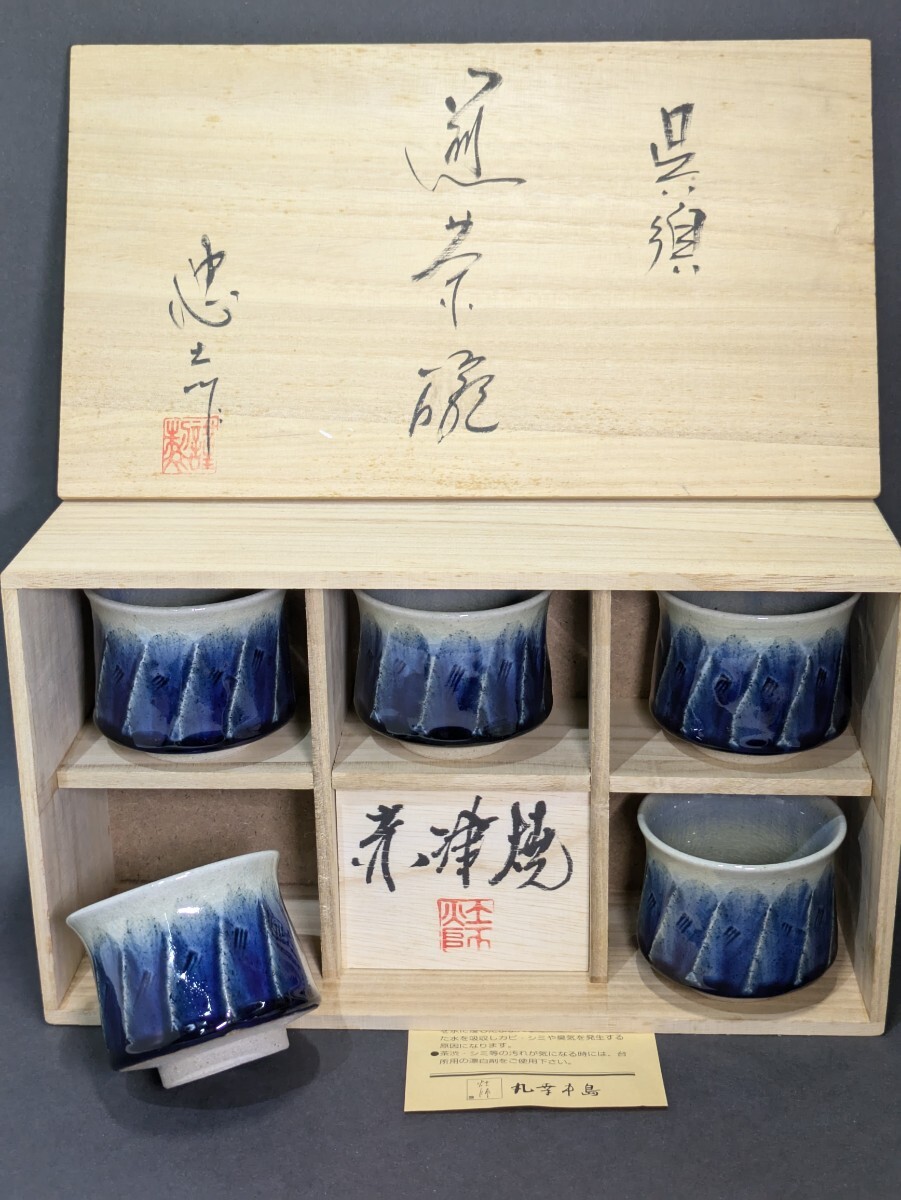 呉須
煎茶碗
忠士作
赤津焼
た水を吸収しカビ・シミや臭気を発生する
原因になります。
●茶渋・シミ等の汚れが気になる時には、台
所用の漂白剤をご使用下さい。
丸幸中島